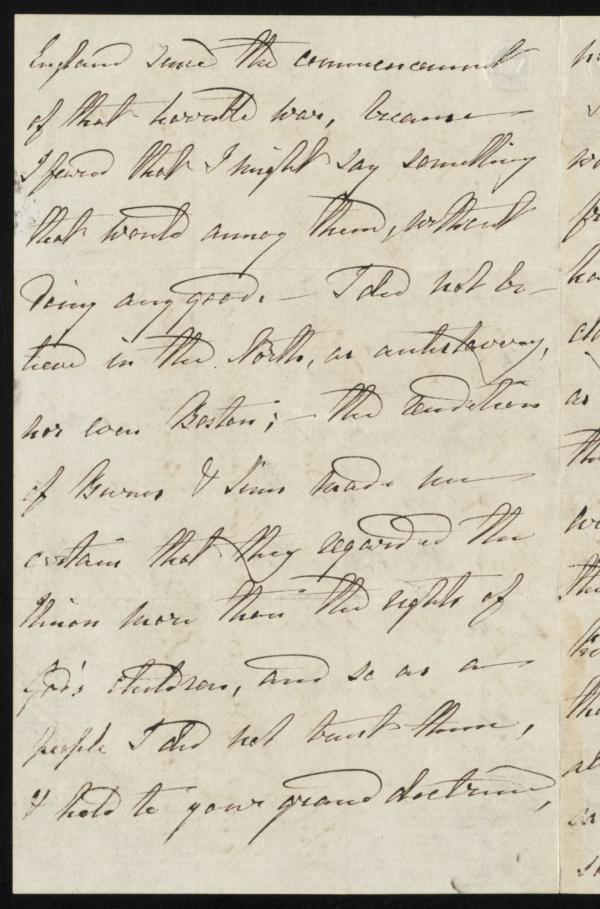 England since the commencement
of that horrible war, because
I feared that I might say something
that would annoy them, without
doing any good. — I did not be-
lieve in the North, as antislavery,
nor even Boston; — the rendition
of Burns & Sims made me
certain that they regarded the
Union more than the rights of
God's children, and so as a
people I did not trust them,
& held to your grand doctrine,